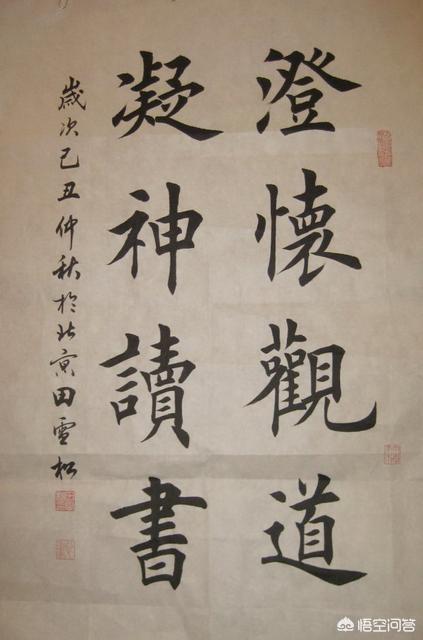 澄懷觀道
凝神讀書
歲次己丑仲秋於北京田雪松
悟空问答